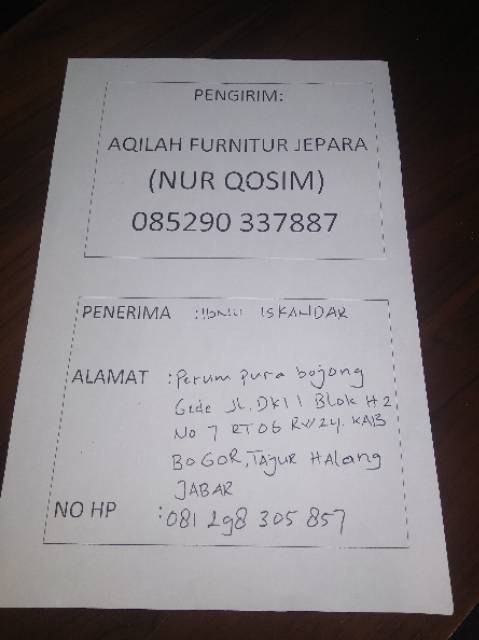 PENGIRIM:
AQILAH FURNITUR JEPARA
(NUR QOSIM)
085290 337887
PENERIMA : ISKANDAR
ALAMAT : Perum pura bojong
Gede Jl. DK11 Blok H2
No 7 RT06 RW24. KAB
BOGOR, TAJUR HALang
JABAR
NO HP : 081 298 305 857